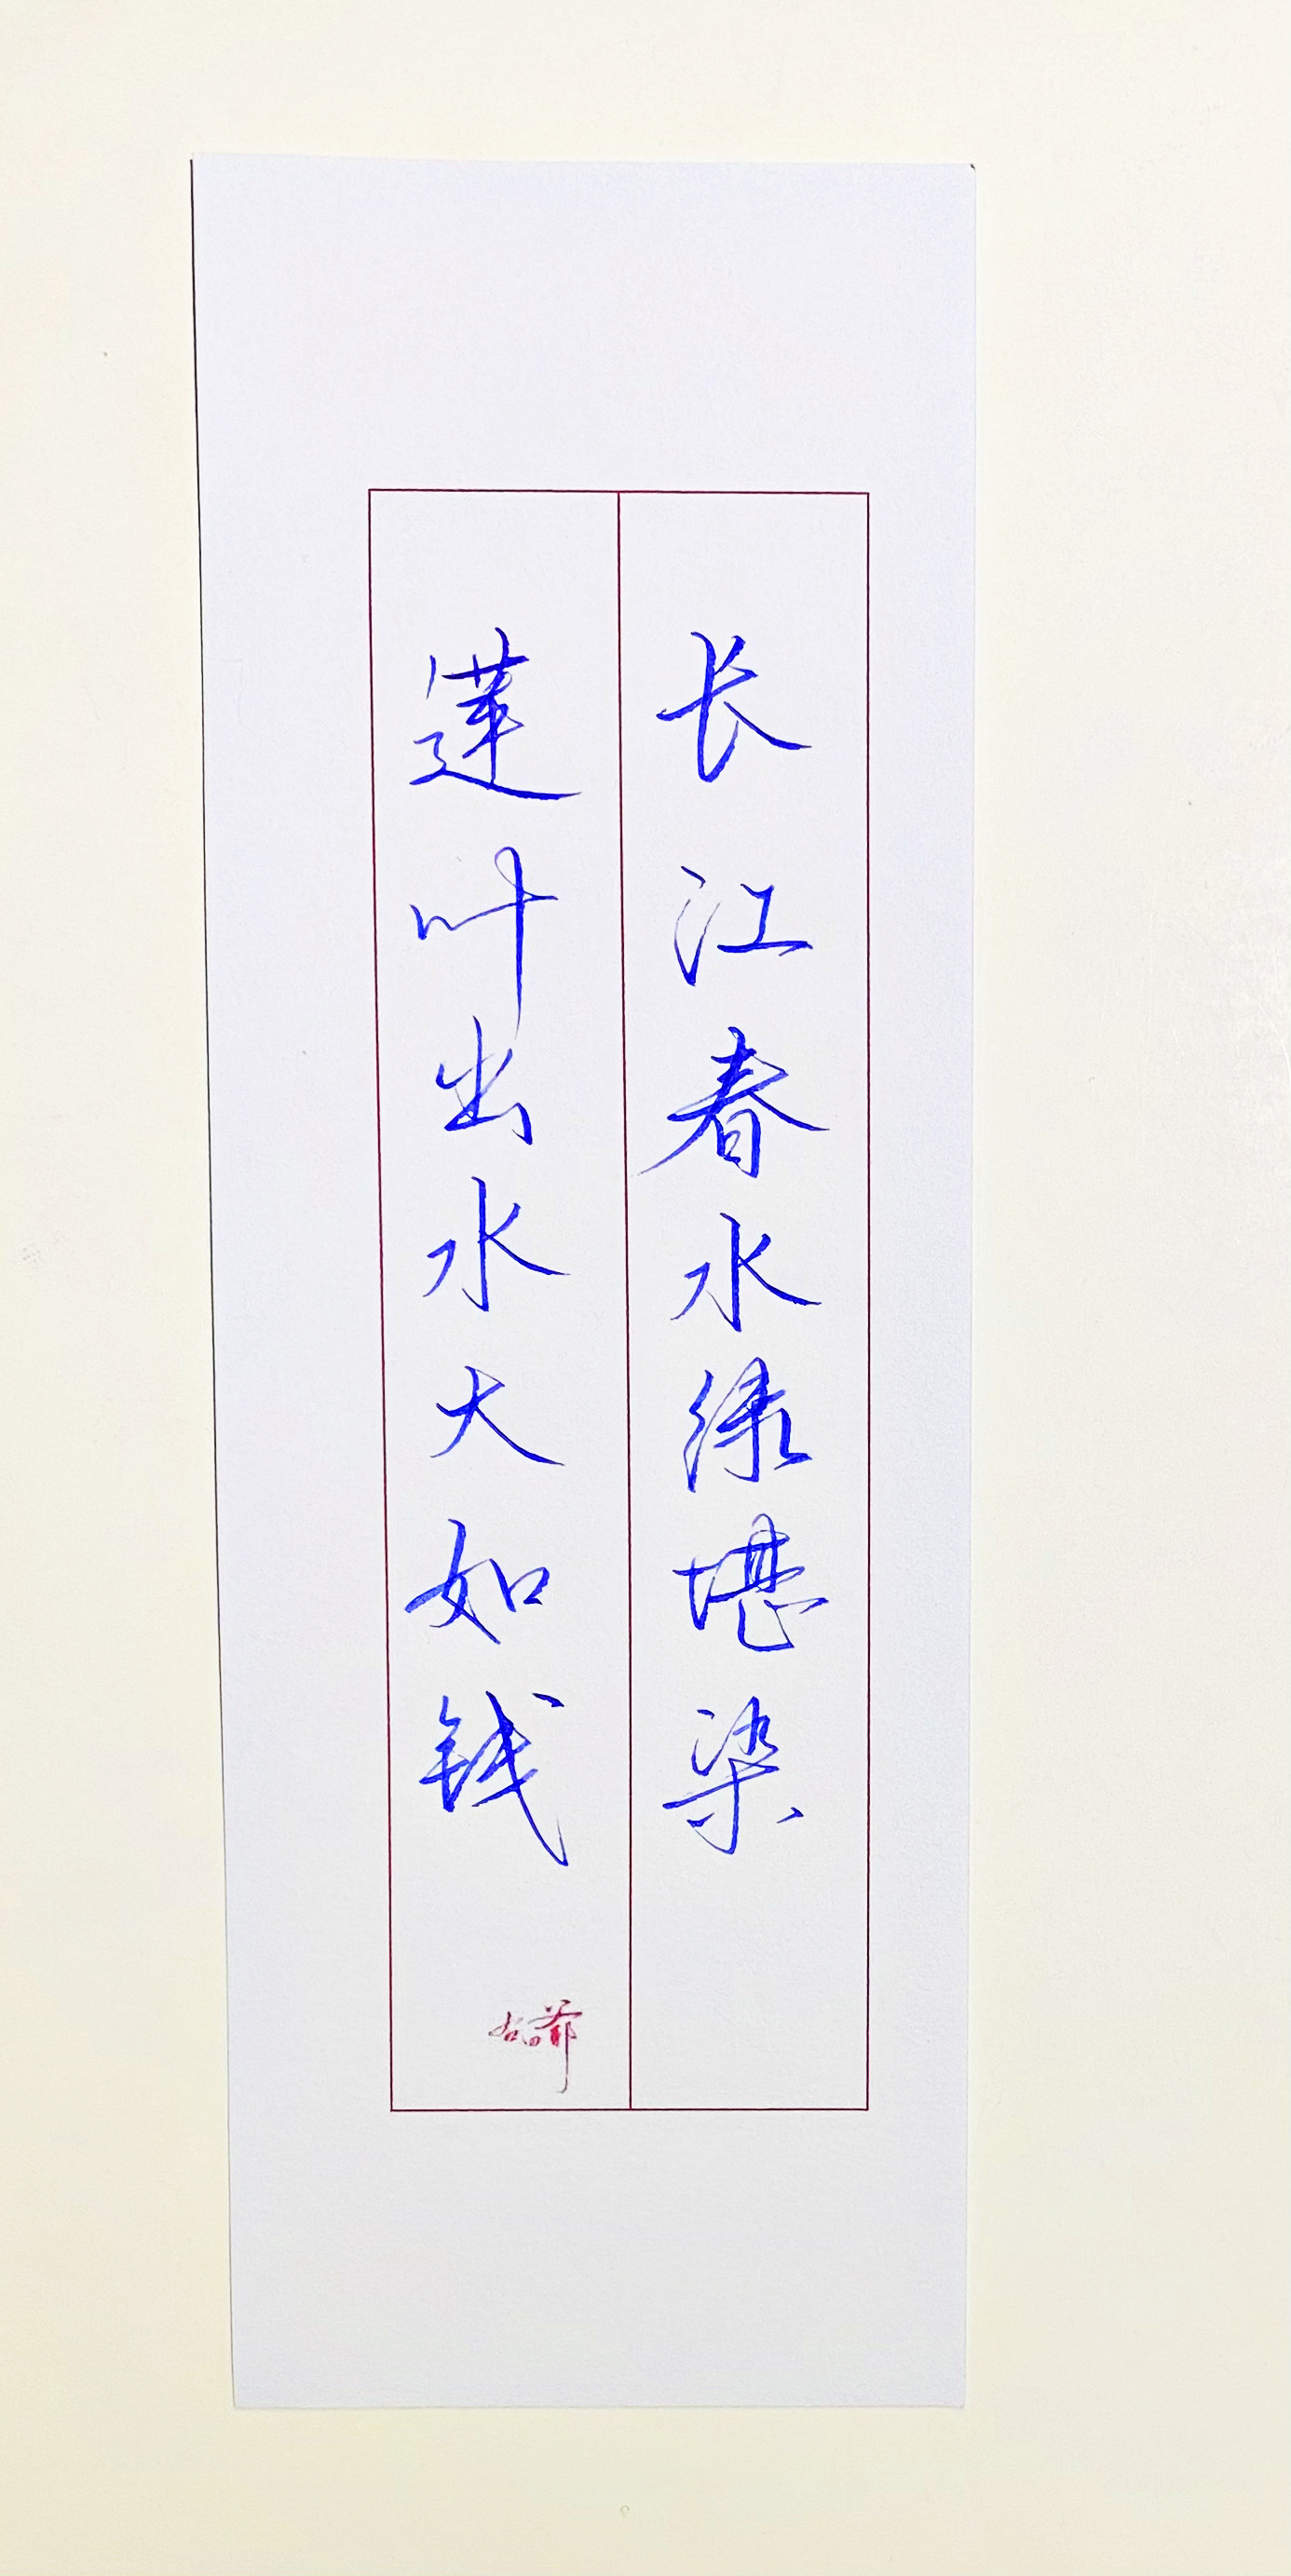 长江春水绿堪染
莲叶出水大如钱